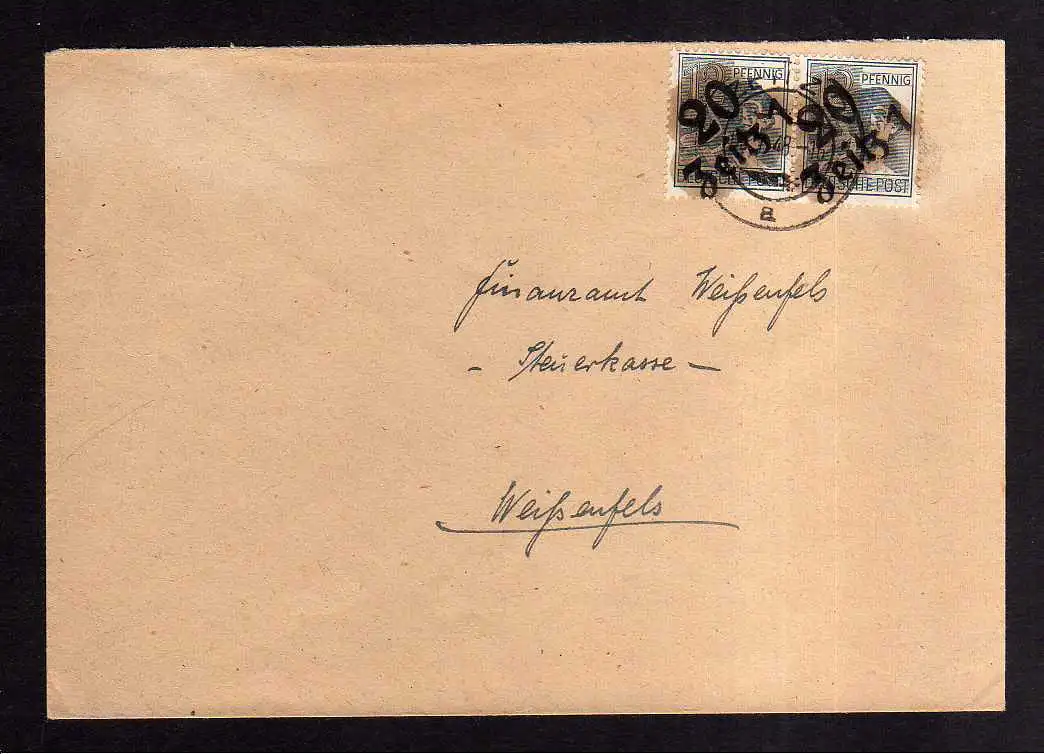 12 PFENNIG 12 PFENNIG
20 20
Zeitz 1 Zeitz 1
DEUTSCHE POST DEUTSCHE POST
a
Finanzamt Weißenfels
- Steuerkasse -
Weißenfels